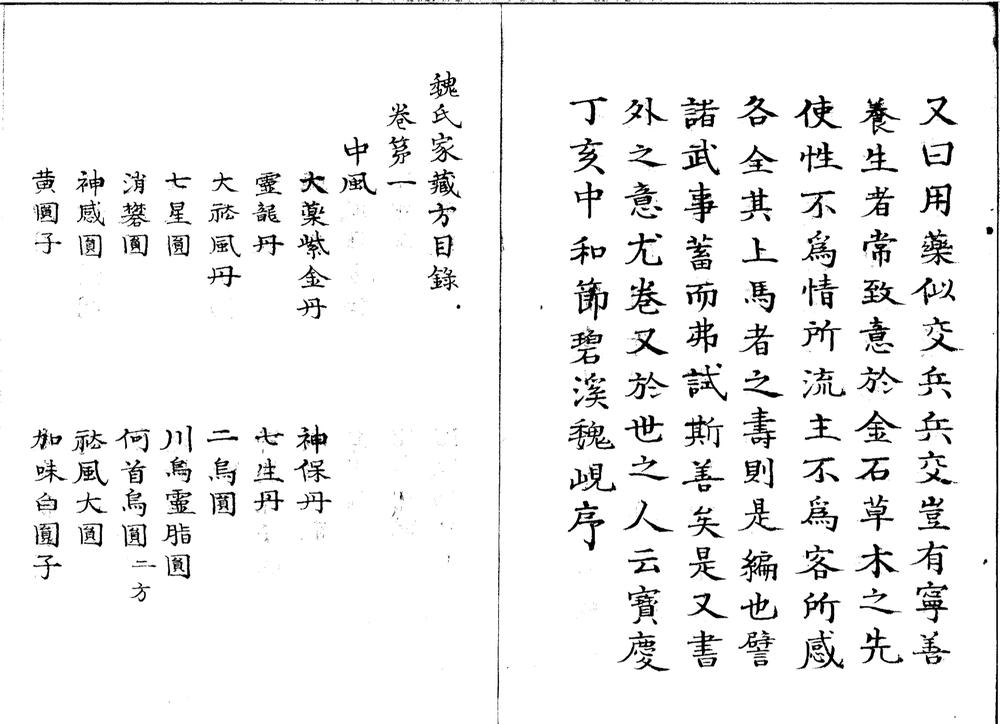 又曰用藥似交兵兵交豈有寧善
養生者常致意於金石草木之先
使性不爲情所流主不爲客所感
各全其上馬者之壽則是編也譬
諸武事蓄而弗試斯善矣是又書
外之意尤卷又於世之人云寶慶
丁亥中和節碧溪魏峴序
魏氏家藏方目錄
卷第一
中風
大藥紫金丹 神保丹
靈龍丹 七生丹
大祛風丹 二烏圓
七星圓 川烏靈脂圓
消礬圓 何首烏圓二方
神感圓 祛風大圓
黃圓子 加味白圓子